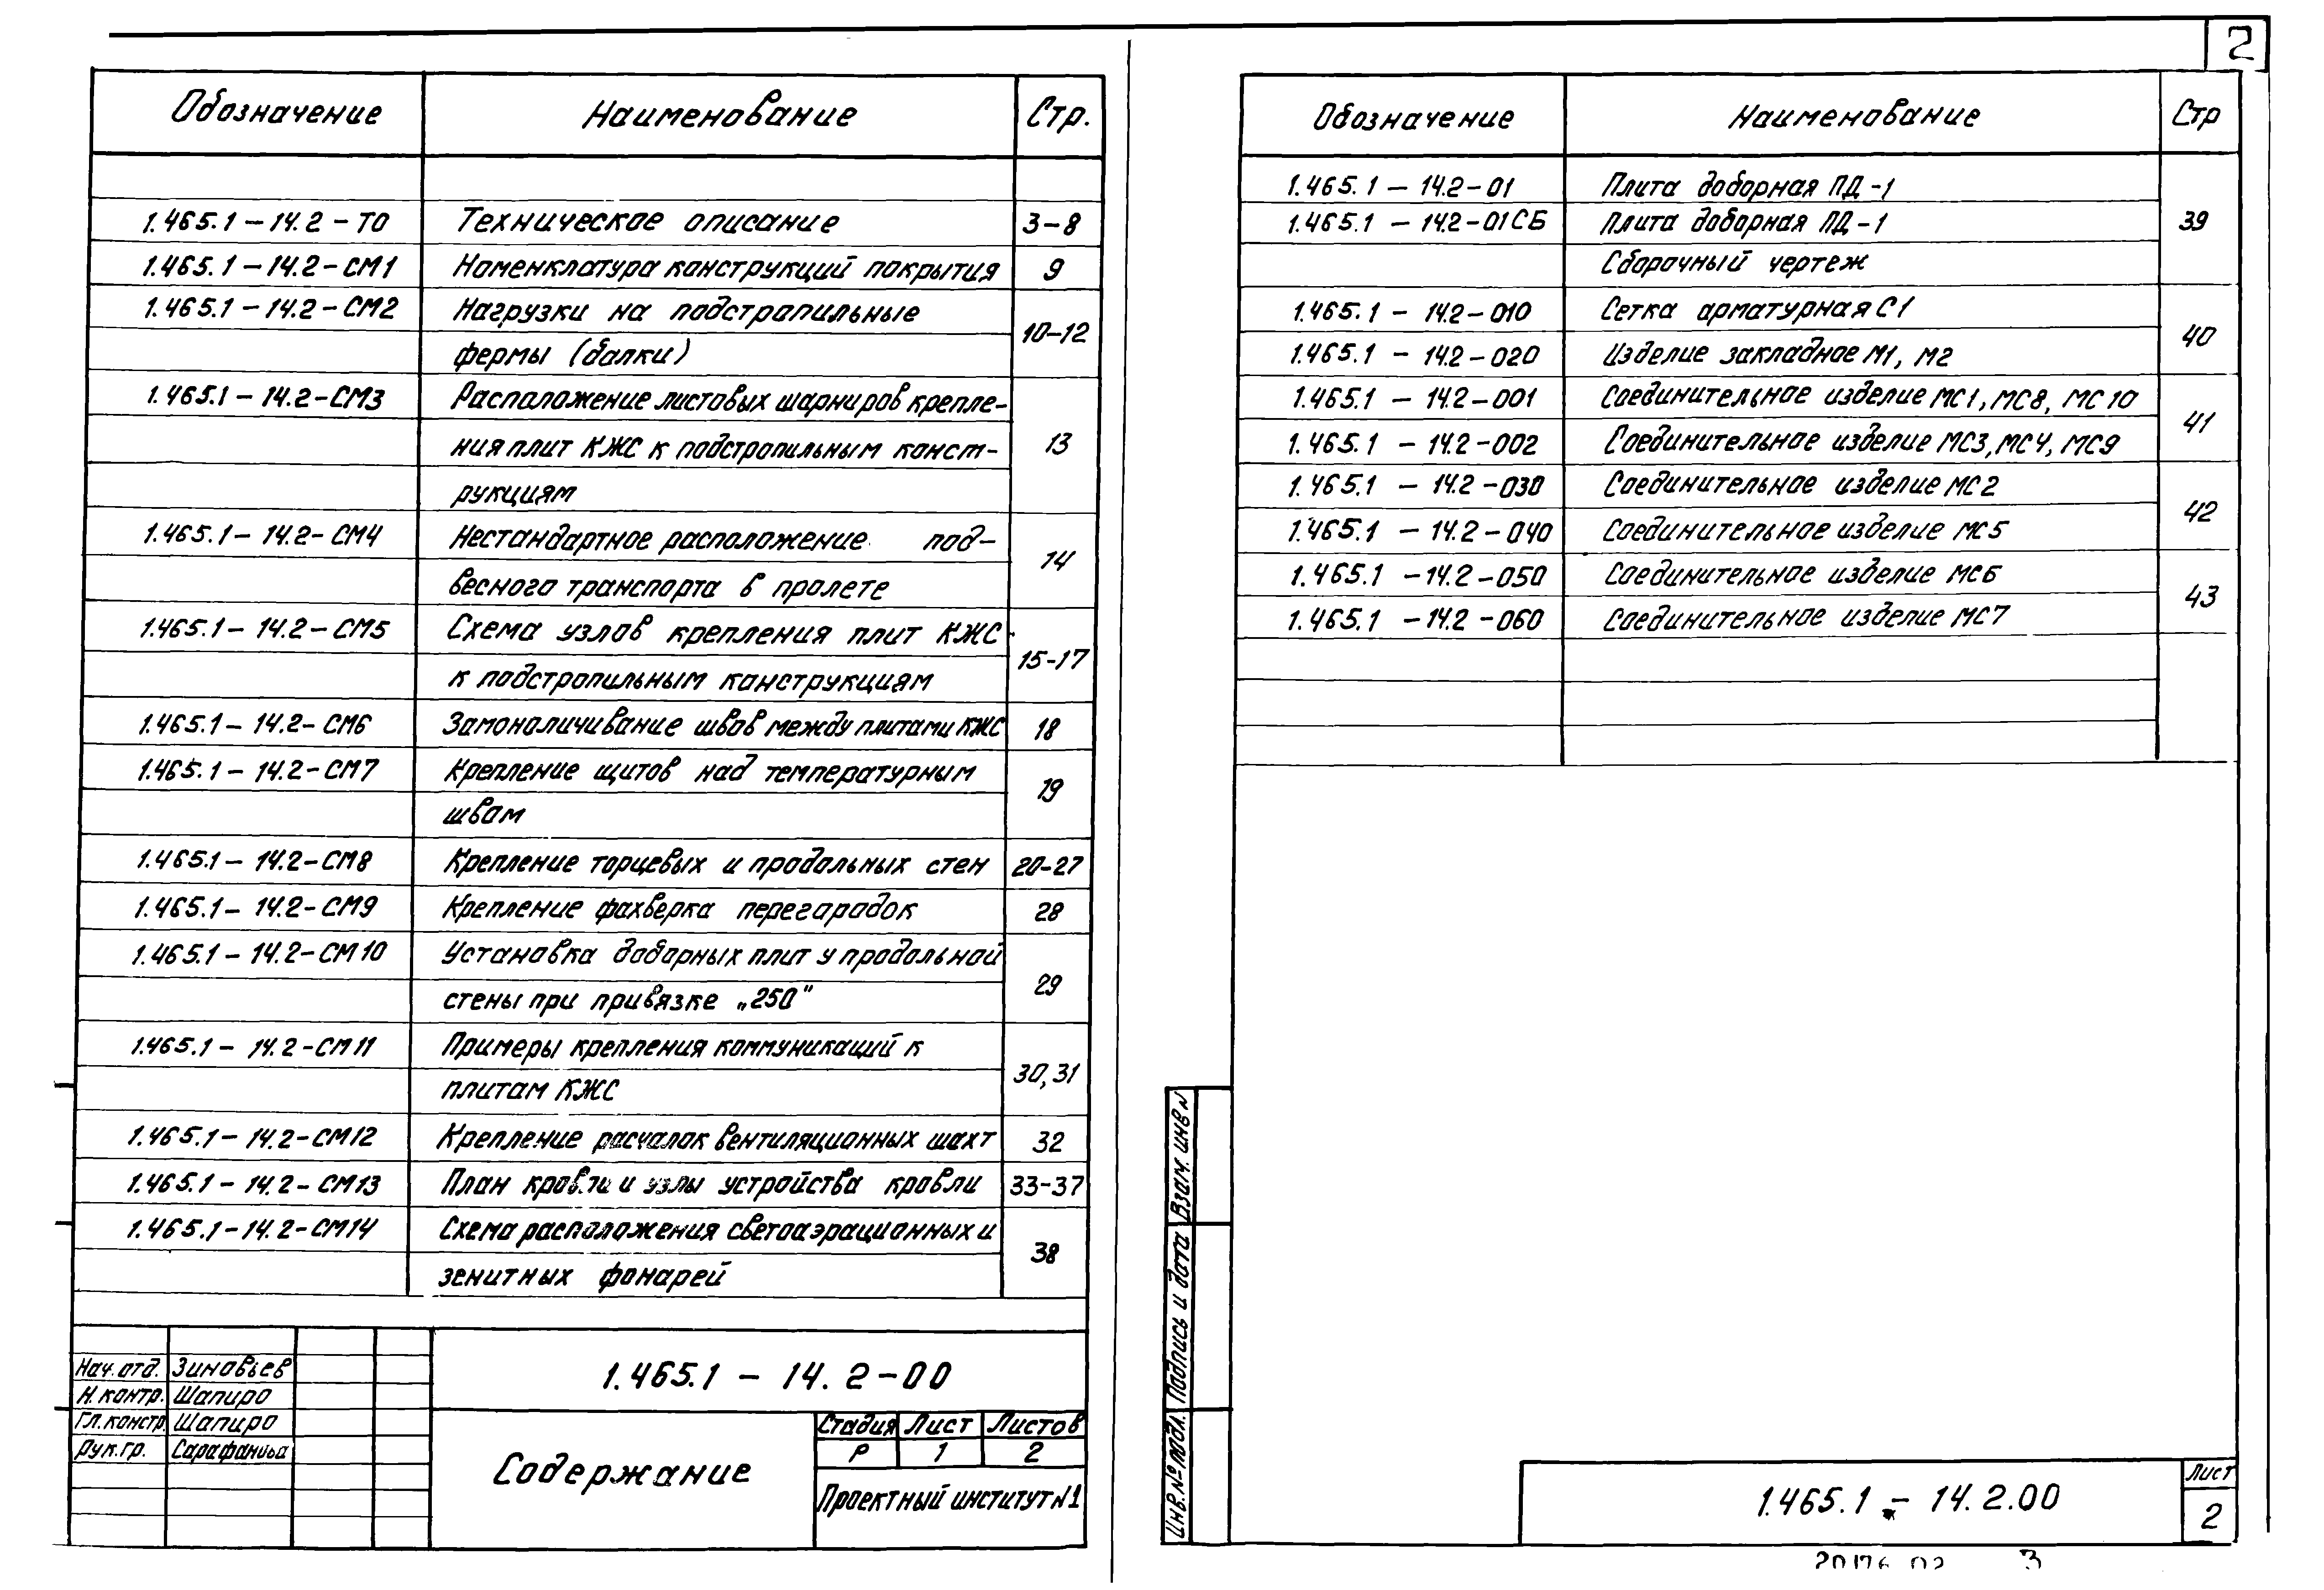 2
Обозначение Наименование Стр.
1.465.1-14.2-ТО Техническое описание 3-8
1.465.1-14.2-СМ1 Номенклатура конструкций покрытия 9
1.465.1-14.2-СМ2 Нагрузки на подстропильные
фермы (балки) 10-12
1.465.1-14.2-СМ3 Расположение листовых шарниров крепле-
ния плит КЖС к подстропильным конст- 13
рукциям
1.465.1-14.2-СМ4 Нестандартное расположение под-
весного транспорта в пролете 14
1.465.1-14.2-СМ5 Схема узлов крепления плит КЖС
к подстропильным конструкциям 15-17
1.465.1-14.2-СМ6 Замоноличивание швов между плитами КЖС 18
1.465.1-14.2-СМ7 Крепление щитов над температурным
швом 19
1.465.1-14.2-СМ8 Крепление торцевых и продольных стен 20-27
1.465.1-14.2-СМ9 Крепление фахверка перегородок 28
1.465.1-14.2-СМ10 Установка доборных плит у продольной
стены при привязке „250" 29
1.465.1-14.2-СМ11 Примеры крепления коммуникаций к
плитам КЖС 30,31
1.465.1-14.2-СМ12 Крепление расчалок вентиляционных шахт 32
1.465.1-14.2-СМ13 План кровли и узлы устройства кровли 33-37
1.465.1-14.2-СМ14 Схема расположения светоаэрационных и
зенитных фонарей 38
Нач. отд. Зиновьев
Н. контр. Шапиро
Гл. констр. Шапиро
Рук. гр. Сарафанова
1.465.1-14.2-00
Содержание
Стадия Лист Листов
Р 1 2
Проектный институт №1
Обозначение Наименование Стр
1.465.1-14.2-01 Плита доборная ПД-1
1.465.1-14.2-01СБ Плита доборная ПД-1 39
Сборочный чертеж
1.465.1-14.2-010 Сетка арматурная С1
1.465.1-14.2-020 Изделие закладное М1, М2 40
1.465.1-14.2-001 Соединительное изделие МС1, МС8, МС10
1.465.1-14.2-002 Соединительное изделие МС3, МС4, МС9 41
1.465.1-14.2-030 Соединительное изделие МС2
1.465.1-14.2-040 Соединительное изделие МС5 42
1.465.1-14.2-050 Соединительное изделие МС6
1.465.1-14.2-060 Соединительное изделие МС7 43
Инв.№ подл. Подпись и дата Взам. инв N
1.465.1-14.2.00
Лист
2
20176 02 3